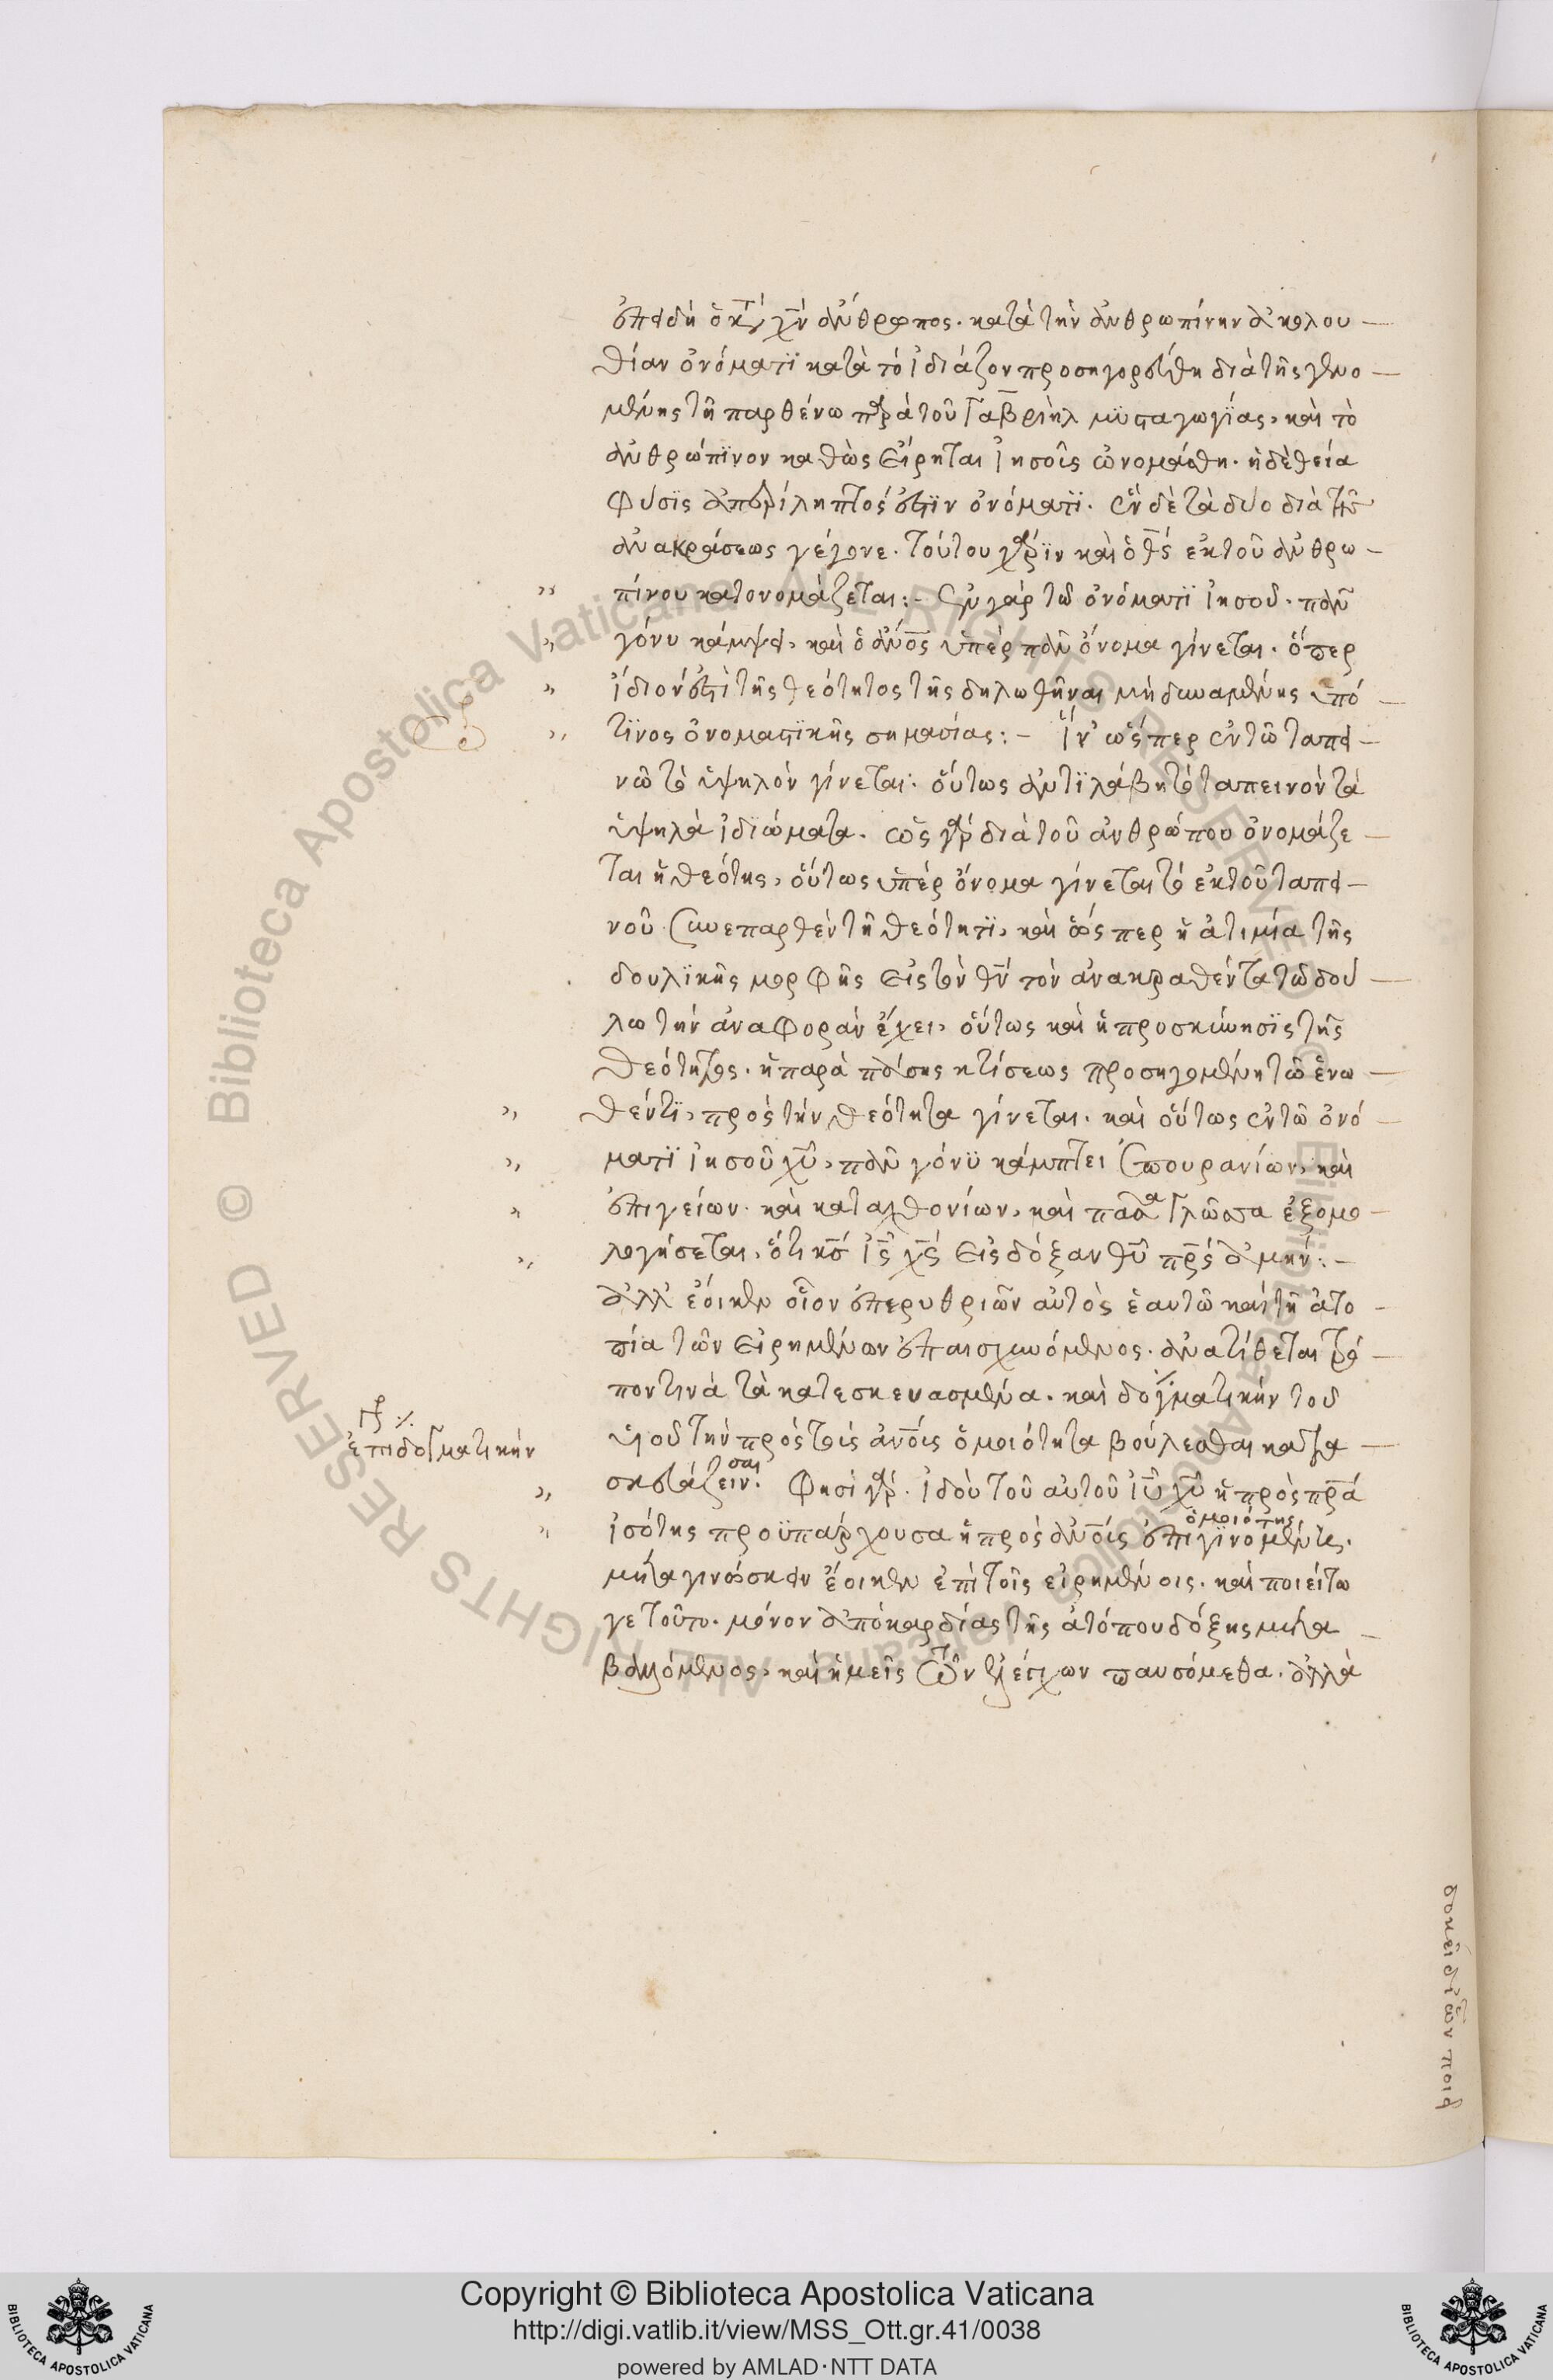 ἐπειδὴ ὁ κατὰ χν ἄνθρωπος. κατὰ τὴν ἀνθρωπίνην ἀκολου
θίαν ὀνόματϊ κατὰ τὸ ἰδιάζον προσηγορεύθη διὰ τῆς γενο
μένης τῆ παρθένω παρὰ τοῦ Γαβριὴλ μϋσταγωγΐας, καὶ τὸ
ἀνθρώπϊνον καθὼς εἴρηται ἰησοῦς ὠνομάσθη. ἡ δὲ θεία
φύσϊς ἀπερίληπτός ἐστϊν ὀνόματϊ. ἓν δὲ τὰ δύο διὰ τῆς
ἀνακράσεως γέγονε. τούτου χάρϊν καὶ ὁ θς ἐκ τοῦ ἀνθρω
πίνου κατονομάζεται:- ἐν γὰρ τῶ ὀνόματϊ ἰησοῦ. πᾶν
γόνυ κάμψει, καὶ ὁ ἄνος ὑπὲρ πᾶν ὄνομα γίνεται. ὅπερ
ἴδιόν ἐστὶ τῆς θεότητος τῆς δηλωθῆναι μὴ δυναμένης ὑπό
τϊνος ὀνομαστϊκῆς σημασίας:- ἵν' ὥσπερ ἐν τῶ ταπει
νῶ τὸ ὑψηλὸν γίνεται: οὕτως ἀντϊλάβη τὸ ταπεινὸν τὰ
ὑψηλὰ ἰδϊώματα. ὡς γὰρ διὰ τοῦ ἀνθρώπου ὀνομάζε
ται ἡ θεότης, οὕτως ὑπὲρ ὄνομα γίνεται τὸ ἐκ τοῦ ταπει
νοῦ συνεπαρθὲν τῆ θεότητϊ, καὶ ὥσπερ ἡ ἀτιμία τῆς
δουλϊκῆς μορφῆς εἰς τὸν θν τὸν ἀνακραθέντα τῶ δού
λω τὴν ἀναφορὰν ἔχει, οὕτως καὶ ἡ προσκύνησϊς τῆς
θεότητος. ἡ παρὰ πάσης κτίσεως προσηγομένη τῶ ἑνω
θέντϊ, πρὸς τὴν θεότητα γίνεται. καὶ οὕτως ἐν τῶ ὀνό
ματϊ ἰησοῦ χυ, πᾶν γόνϋ κάμπτει ἐπουρανίων, καὶ
ἐπιγείων. καὶ καταχθονίων, καὶ πᾶσα γλῶσσα ἐξομο
λογήσεται, ὅτι κς ις χς εἰς δόξαν θυ πρς ἀμήν:-
ἀλλ' ἔοικεν οἷον ἐπερυθριῶν αὐτὸς ἑαυτῶ καὶ τῆ ἀτο
πία τῶν εἰρημένων ἐπαισχυνόμενος. ἀνατίθεται τρό
πον τινὰ τὰ κατεσκευασμένα. καὶ δογματικὴν τοῦ
ἐπιδογματικὴν
υἱοῦ τὴν πρὸς τοὺς ἀνους ὁμοιότητα βούλεσθαι κατα
σκευάζειν. σαι φησὶ γάρ. ἰδοὺ τοῦ αὐτοῦ ιυ χυ ἡ πρὸς πρα
ἰσότης προϋπάρχουσα ἡ πρὸς ἀνους ὁμοιότης ἐπιγϊνομένης.
μεταγινώσκειν ἔοικεν ἐπὶ τοῖς εἰρημένοις. καὶ ποιείτω
γε τοῦτο. μόνον ἀπὸ καρδίας τῆς ἀτόπου δόξης μετα
βαλλόμενος, καὶ ἡμεῖς τῶν ἐλέγχων παυσόμεθα. ἀλλὰ
Copyright © Biblioteca Apostolica Vaticana
http://digi.vatlib.it/view/MSS_Ott.gr.41/0038
powered by AMLAD·NTT DATA
BIBLIOTECA APOSTOLICA VATICANA
BIBLIOTECA APOSTOLICA VATICANA